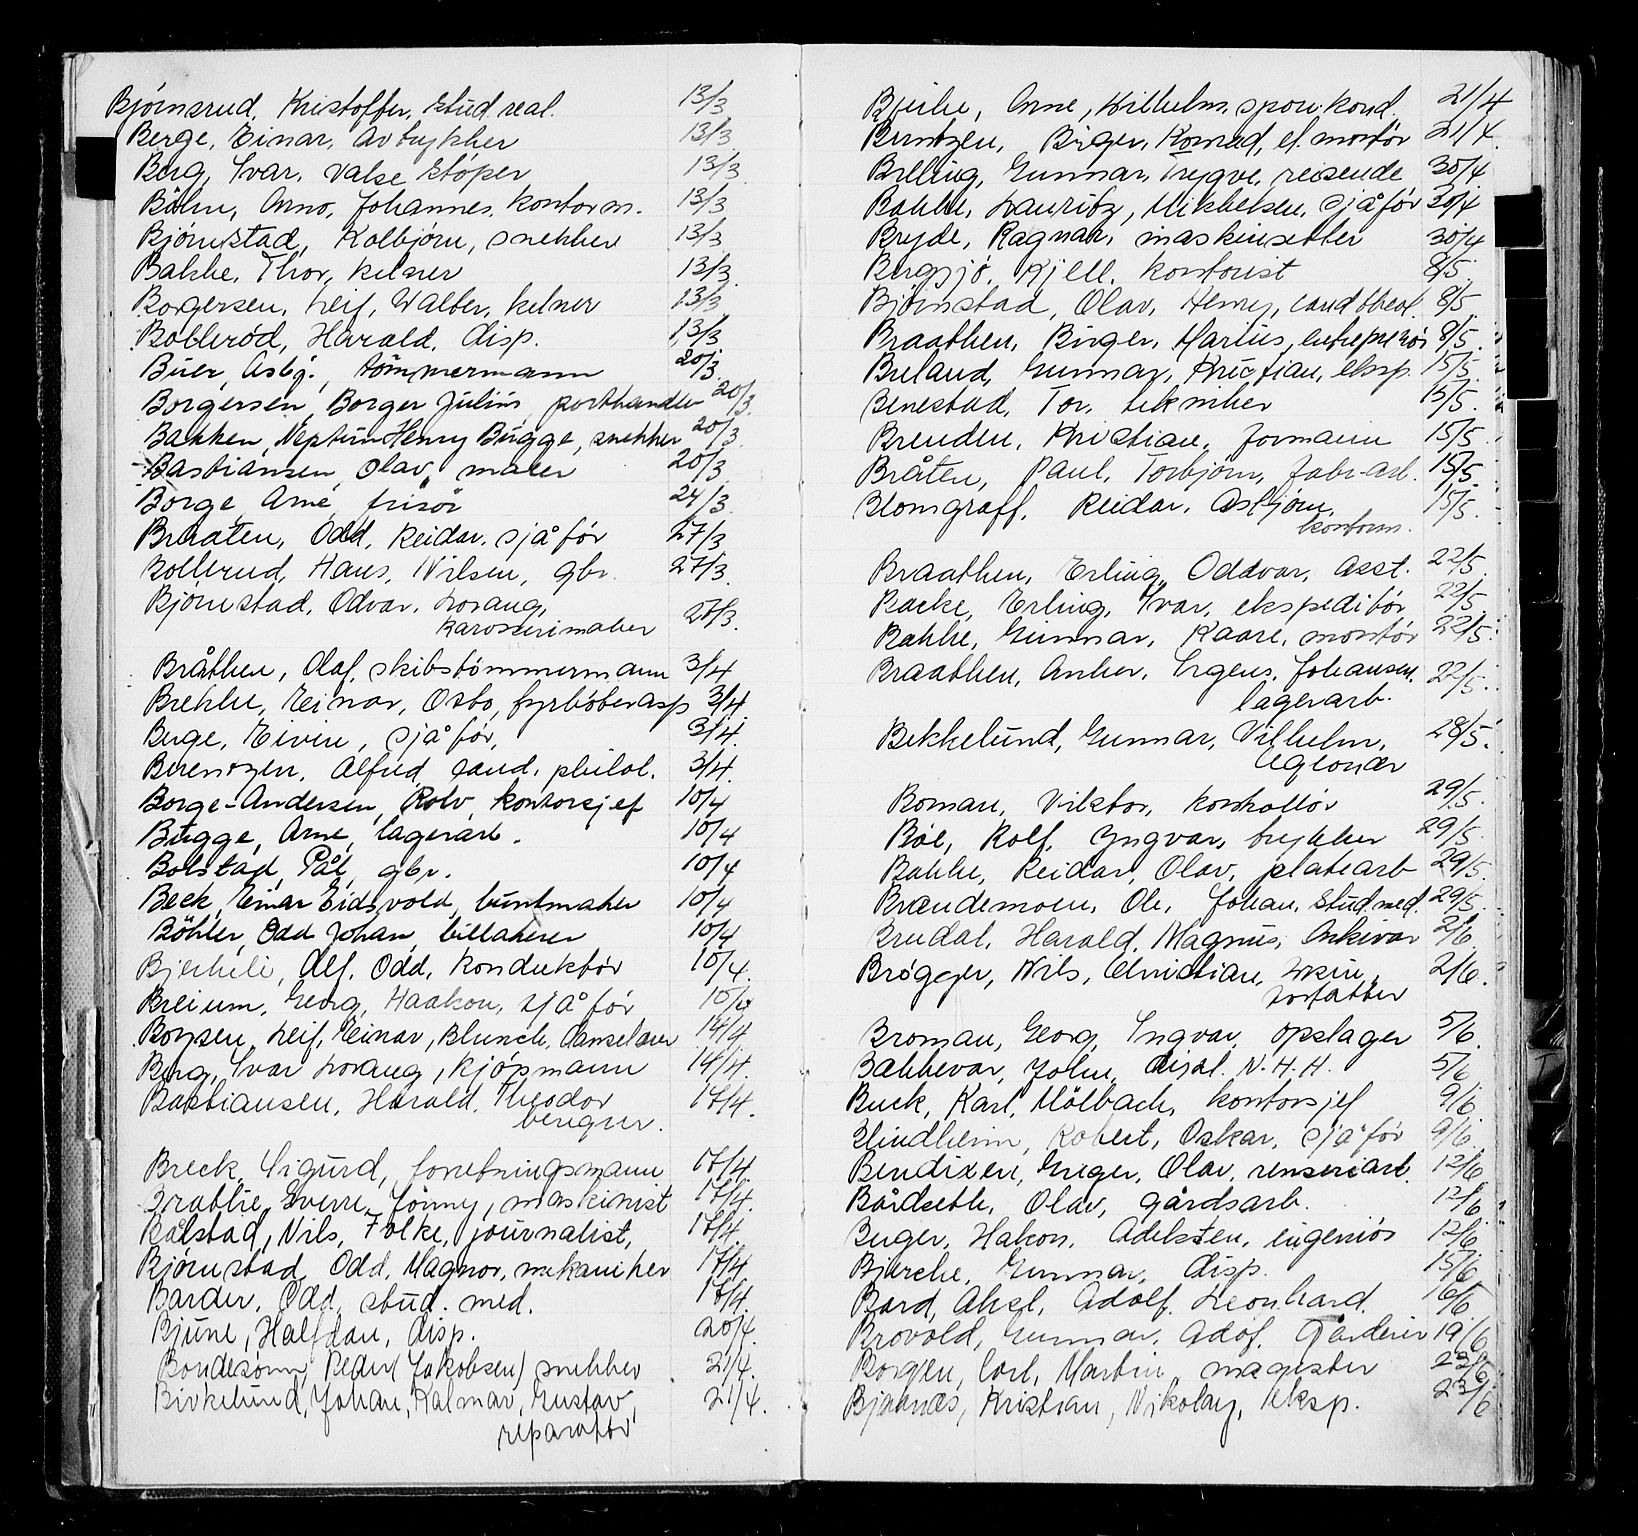 Bjørnsrud, Kristoffer, stud. real. 13/3
Berge, Einar, Avtrykker 13/3
Berg, Ivar, Valse støper 13/3
Böhn, Arno, Johannes, kontorm. 13/3
Bjørnstad, Kolbjørn, snekker 13/3
Bakke, Thor, kelner 13/3
Borgersen, Leif, Walter, kelner 13/3
Bollerød, Harald, disp. 13/3
Buer, Asbj., tømmermann 20/3
Borgersen, Borger Julius, porthandler 20/3
Bakken, Neptun Henry Bugge, snekker 20/3
Bastiansen, Olav, maler 20/3
Borge, Arne, frisör 24/3
Braaten, Odd, Reidar, sjåfør 27/3
Bollerud, Hans, Nilsen, gbr. 27/3
Bjørnstad, Odvar, Lorang,
karosserimaker 27/3.
Bråthen, Olaf, skibstømmermann 3/4
Brekke, Einar, Osbo, fyrbøterasp 3/4
Berge, Eivin, sjåfør, 3/4.
Berentzen, Alfred, cand. philol. 3/4.
Borge-Andersen, Rolv, kontorsjef 10/4
Bugge, Arne, lagerarb. 10/4
Bolstad, Pål, gbr. 10/4
Beck, Einar Eidsvold, buntmaker 10/4
Böhler, Odd Johan, billakerer 10/4
Bjerkeli, Alf, Odd, konduktör 10/4.
Breium, Georg, Haakon, sjåfør 10/4
Boysen, Leif, Einar, Blunck, danselærer 14/4
Berg, Ivar Lorang, kjøpmann 14/4.
Bastiansen, Harald, Theodor 17/4.
Breck, Sigurd, forretningsmann 17/4
Brattlie, Sverre, Jonny, maskinist 17/4.
Bålstad, Nils, Folke, journalist, 17/4.
Bjørnstad, Odd, Magnor, mekaniker 17/4
Barder, Odd, stud. med. 17/4.
Bjune, Halfdan, disp. 20/4.
Bondesønn, Peder (Jakobsen) snekker 21/4.
Birkelund, Johan, Kalmar, Gustav,
reparatør 21/4.
Bjerke, Arne, Wilhelm, 21/4
Berntzen, Birger, Konrad, el. montör 21/4.
Belling, Gunnar, Trygve, reisende 30/4
Bakke, Lauritz, Mikkelsen, sjåför 30/4
Bryde, Ragnar, maskinsetter 30/4
Bergsjö, Kjell, kontorist 8/5.
Bjørnstad, Olav, Henry, cand theol. 8/5.
Braathen, Birger, Marius, entreprenör 8/5.
Breland, Gunnar, Kristian, eksp. 15/5.
Benestad, Tor, tekniker 15/5.
Brenden, Kristian, formann 15/5.
Bråten, Paul, Torbjørn, fabr-arb. 15/5.
Blomgraff, Reidar, Asbjørn, 15/5.
kontorm.
Braathen, Erling, Oddvar, Asst. 22/5.
Backe, Erling, Ivar, ekspeditör 22/5.
Bakke, Gunnar, Kaare, montör 22/5.
Braathen, Anker, Johansen, 22/5.
lagerarb.
Bekkelund, Gunnar, Vilhelm, 28/5.
Boman, Viktor, kontrollör 29/5.
Bøe, Rolf, Yngvar, trykker 29/5.
Bakke, Reidar, Olav, platearb 29/5.
Brandemoen, Ole, Johan, stud. med. 29/5.
Brudal, Harald, Magnus, Arkivar 2/6.
Brøgger, Nils, Christian,
forfatter 2/6.
Broman, Georg, Ingvar, opslager 5/6.
Bakkevar, John, dist. N.H.H. 5/6
Buck, Karl, Mölbach, kontorsjef 9/6.
Blindheim, Robert, Oskar, sjåfør 9/6.
Bendixen, Greger, Olav, renseriarb. 12/6.
Bårdseth, Olav, gårdsarb. 12/6
Buger, Hakon, Adelsten, ingeniör 12/6.
Bjerche, Gunnar, disp. 15/6.
Bard, Aksel, Adolf, Leonhard. 16/6
Brovold, Gunnar, Adof, Garderier 19/6
Borgen, Carl, Martin, magister 22/6
Bjaanæs, Kristian, Nikolay, eksp. 23/6